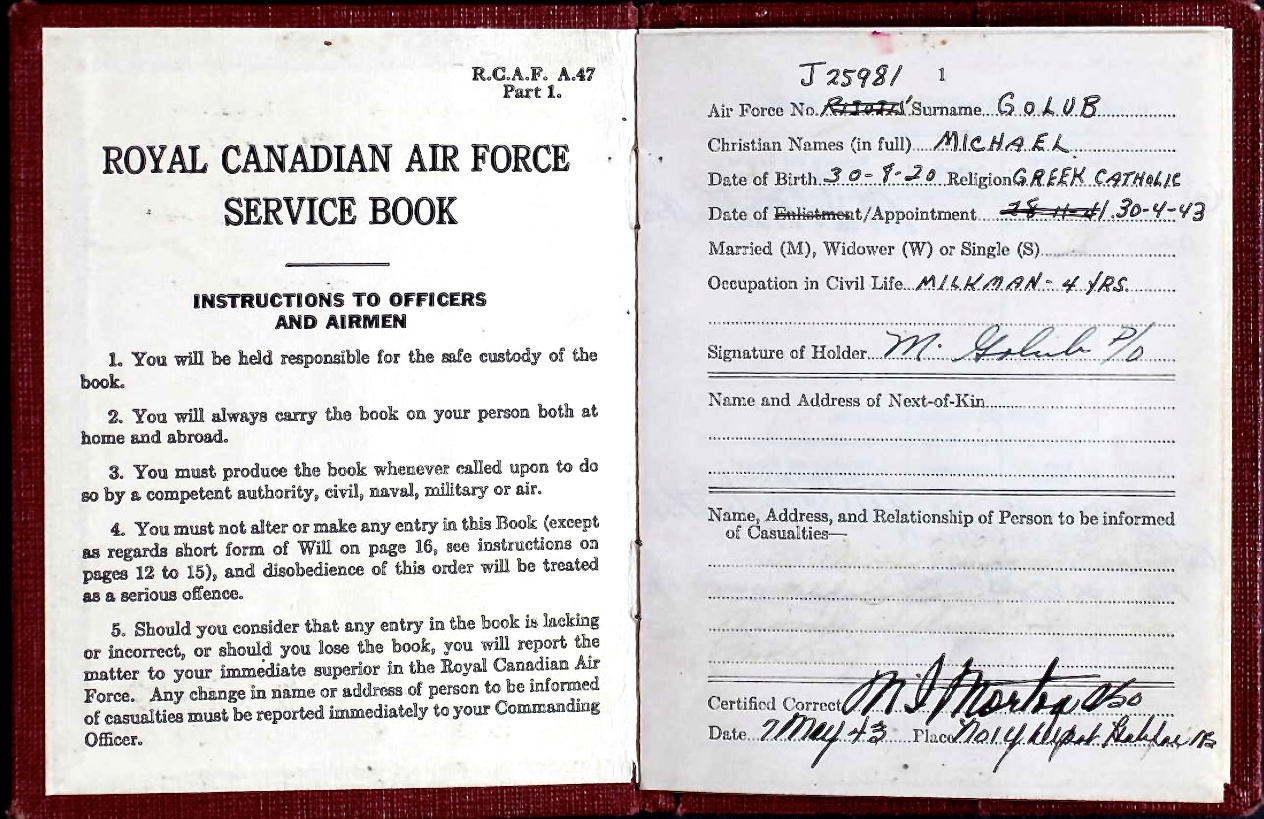 R.C.A.F. A.47
Part 1.
ROYAL CANADIAN AIR FORCE
SERVICE BOOK
INSTRUCTIONS TO OFFICERS
AND AIRMEN
1. You will be held responsible for the safe custody of the
book.
2. You will always carry the book on your person both at
home and abroad.
3. You must produce the book whenever called upon to do
so by a competent authority, civil, naval, military or air.
4. You must not alter or make any entry in this Book (except
as regards short form of Will on page 16, see instructions on
pages 12 to 15), and disobedience of this order will be treated
as a serious offence.
5. Should you consider that any entry in the book is lacking
or incorrect, or should you lose the book, you will report the
matter to your immediate superior in the Royal Canadian Air
Force. Any change in name or address of person to be informed
of casualties must be reported immediately to your Commanding
Officer.
J25981 1
Air Force No. Surname GOLUB
Christian Names (in full) MICHAEL
Date of Birth 30-9-20 Religion GREEK CATHOLIC
Date of Enlistment/Appointment 28-11-41 30-4-43
Married (M), Widower (W) or Single (S)
Occupation in Civil Life MILKMAN - 4 YRS.
Signature of Holder M. Golub P/O
Name and Address of Next-of-Kin
Name, Address, and Relationship of Person to be informed
of Casualties—
Certified Correct
Date 7 May 43 Place No 1 Y Depot Halifax